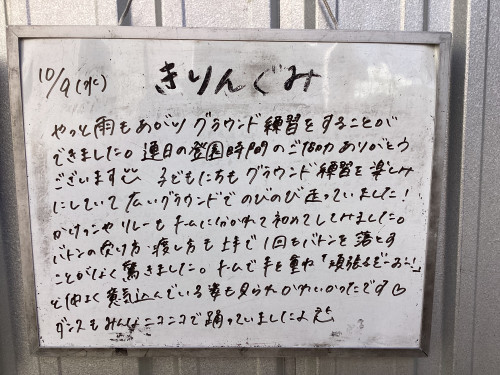 10/9(水) きりんぐみ
やっと雨もあがり グラウンド練習をすることが
できました。連日の登園時間のご協力ありがとう
ございます 子どもたちもグラウンド練習を楽しみ
にしていて広いグラウンドでのびのび走っていました!
かけっこやリレーもチームにわかれて初めてしてみました。
バトンの受け方・渡し方も上手で1回もバトンを落とす
ことがなく驚きました。チームで手を重ね「頑張るぞーおー!」
と仲よく意気込んでいる姿も見られかわいかったです♡
ダンスもみんなニコニコで踊っていましたよ